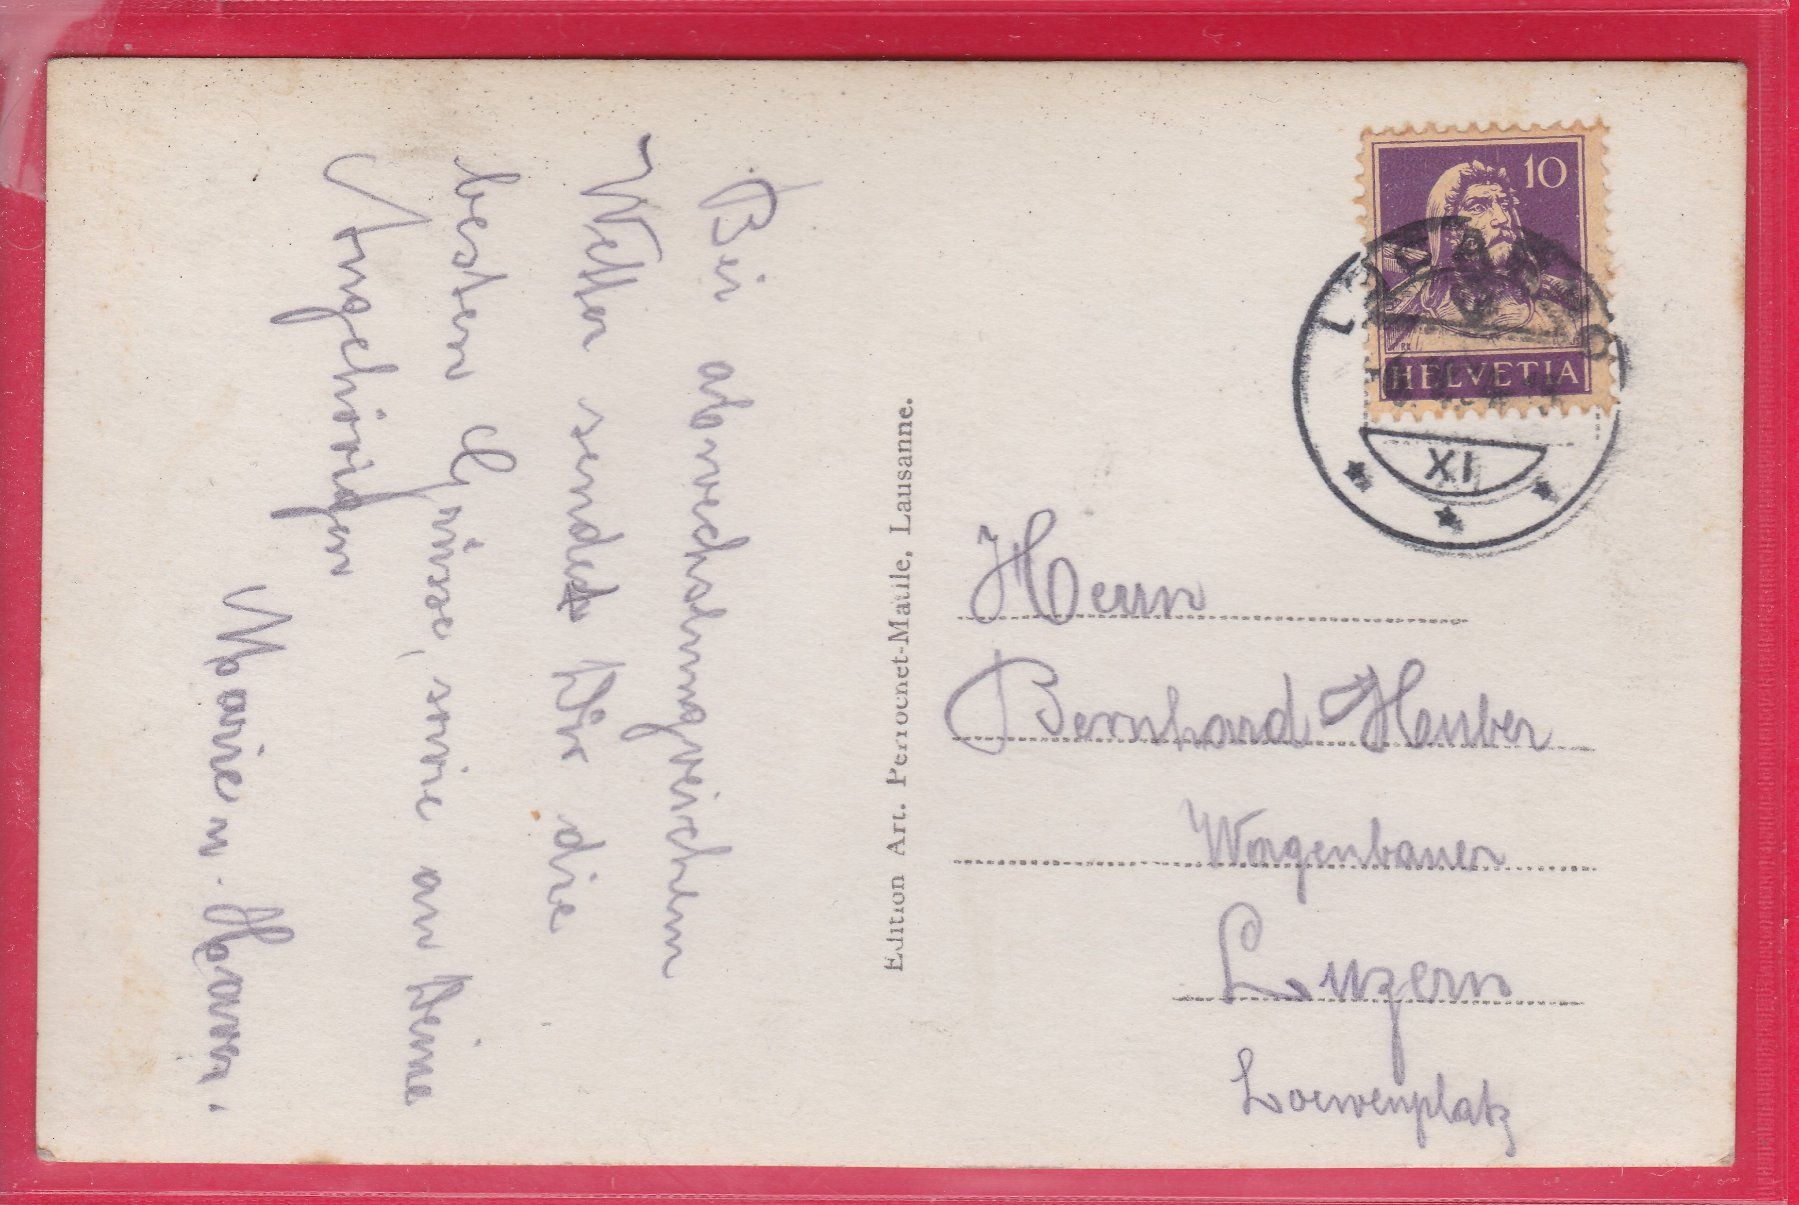 Bei abwechslungreichem
Wetter sendet Dir die
besten Grüsse, sowie an Deine
Angehörigen
Marie u.
Edition Art. Perrochet-Matile, Lausanne.
10
HELVETIA
LOCARNO
XI
Herrn
Bernhard Heuber
Wagenbauer
Luzern
Loewenplatz